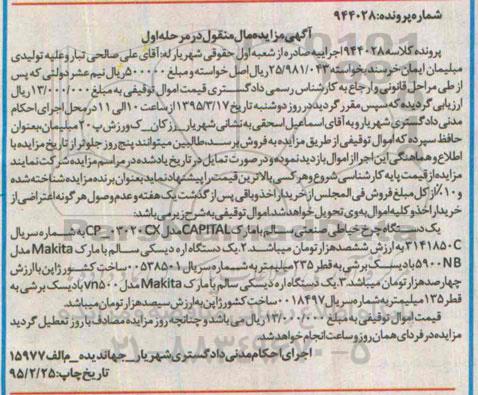 شماره پرونده: ۹۴۴۰۲۸
آگهی مزایده مال منقول در مرحله اول
پرونده کلاسه ۹۴۴۰۲۸ اجراییه صادره از شعبه اول حقوقی شهریار له: آقای علی صالحی تبار و علیه تولیدی
مبلمان ایمان خرسند بخواسته ۲۵/۹۸۱/۰۴۳ ریال اصل خواسته و مبلغ ۵۰۰۰۰۰ ریال نیم عشر دولتی که پس
از طی مراحل قانونی و ارجاع به کارشناس رسمی دادگستری قیمت اموال توقیفی به مبلغ ۱۳/۰۰۰/۰۰۰ ریال
ارزیابی گردیده که سپس مقرر گردید در روز دوشنبه تاریخ ۱۳۹۵/۳/۱۷ از ساعت ۱۰ الی ۱۱ در محل اجرای احکام
مدنی دادگستری شهریار و به آقای اسماعیل اسحقی به نشانی شهریار_رزکان_ک ورزش پ ۲۰ مبلمان، بعنوان
حافظ سپرده که اموال توقیفی از طریق مزایده به فروش برسد، طالبین میتوانند پنج روز جلوتر از تاریخ مزایده با
اطلاع و هماهنگی این اجرا از اموال بازدید نموده و در صورت تمایل در تاریخ یاد شده در مراسم مزایده شرکت نمایند
مزایده از قیمت پایه کارشناسی شروع و هر کسی بالاترین قیمت را پیشنهاد نماید بعنوان برنده مزایده شناخته شده
و ۱۰٪ از کل مبلغ فروش فی المجلس از خریدار اخذ و باقی پس از گذشت یک هفته و عدم وصول هر گونه اعتراضی از
خریدار اخذ و کلیه اموال به وی تحویل خواهد شد. اموال توقیفی به شرح زیر می باشد:
یک دستگاه چرخ خیاطی صنعتی سالم با مارک CAPITAL مدل CP_۰۳۰۲۰ CX به شماره سریال
۳۱۴۱۸۵۰C به ارزش ششصد هزار تومان میباشد.۲.یک دستگاه اره دیسکی سالم با مارک Makita مدل
۵۹۰۰NB با دیسک برشی به قطر ۲۳۵ میلیمتر به شماره سریال ۰۰۵۳۸۵۰۱ ساخت کشور ژاپن با ارزش
چهارصد هزار تومان میباشد.۳.یک دستگاه اره دیسکی سالم با مارک Makita مدل vn۵۰۰ با دیسک برشی به
قطر ۱۳۵ میلیمتر به شماره سریال ۰۰۱۸۴۹۷ ساخت کشور ژاپن به ارزش سیصد هزار تومان میباشد.
قیمت اموال توقیفی به مبلغ ۱۳/۰۰۰/۰۰۰ ریال می باشد و چنانچه روز مزایده مصادف با روز تعطیل گردید
مزایده در فردای همان روز و ساعت انجام خواهد شد.
اجرای احکام مدنی دادگستری شهریار_جهاندیده_م الف ۱۵۹۷۷
تاریخ چاپ: ۹۵/۲/۲۵